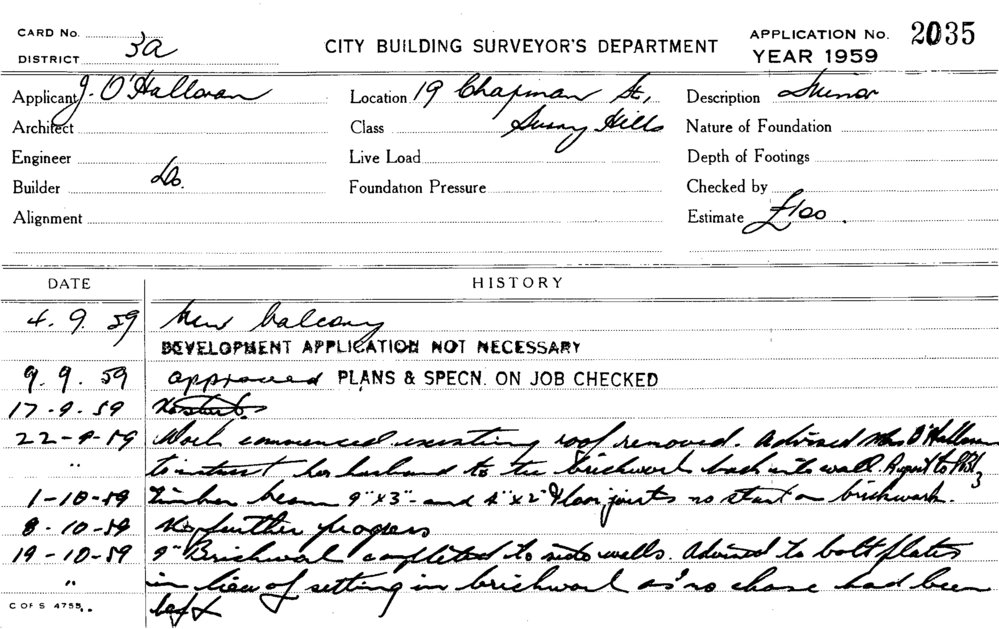 CARD No.
DISTRICT 3a
CITY BUILDING SURVEYOR'S DEPARTMENT
APPLICATION No. 2035
YEAR 1959
Applicant J. O'Halloran
Location 19 Chapman St,
Description Minor
Architect
Class Surry Hills
Nature of Foundation
Engineer
Live Load
Depth of Footings
Builder Do.
Foundation Pressure
Checked by
Alignment
Estimate £100.
DATE HISTORY
4. 9. 59 New balcony
DEVELOPMENT APPLICATION NOT NECESSARY
9. 9. 59 approved PLANS & SPECN. ON JOB CHECKED
17-9-59 No start.
22-9-59 Work commenced existing roof removed. Advised Mrs O'Halloran
" to instruct her husband to tie brickwork back into wall.
1-10-59 Timber beam 9"x3" and 4"x2" floor joists no start on brickwork.
8-10-59 No further progress
19-10-59 9" Brickwork completed to side walls. Advised to bolt plates
" in lieu of setting in brickwork as no chase had been
left
C OF S 4755